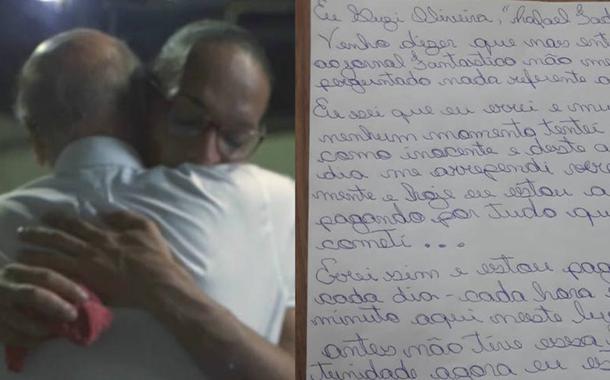 Eu Suzi Oliveira, "Rafael Tad
Venho dizer que nas ent
ao jornal Fantastico não me
perguntado nada referente a
Eu sei que eu errei e mu
nenhum momento tentei
como inocente e deste a
dia me arrependi verd
mente e hoje eu estou a
pagando por tudo qu
cometi ...
Errei sim e estou pag
cada dia - cada hora
minuto aqui neste lu
antes não tive essa
tunidade agora eu es